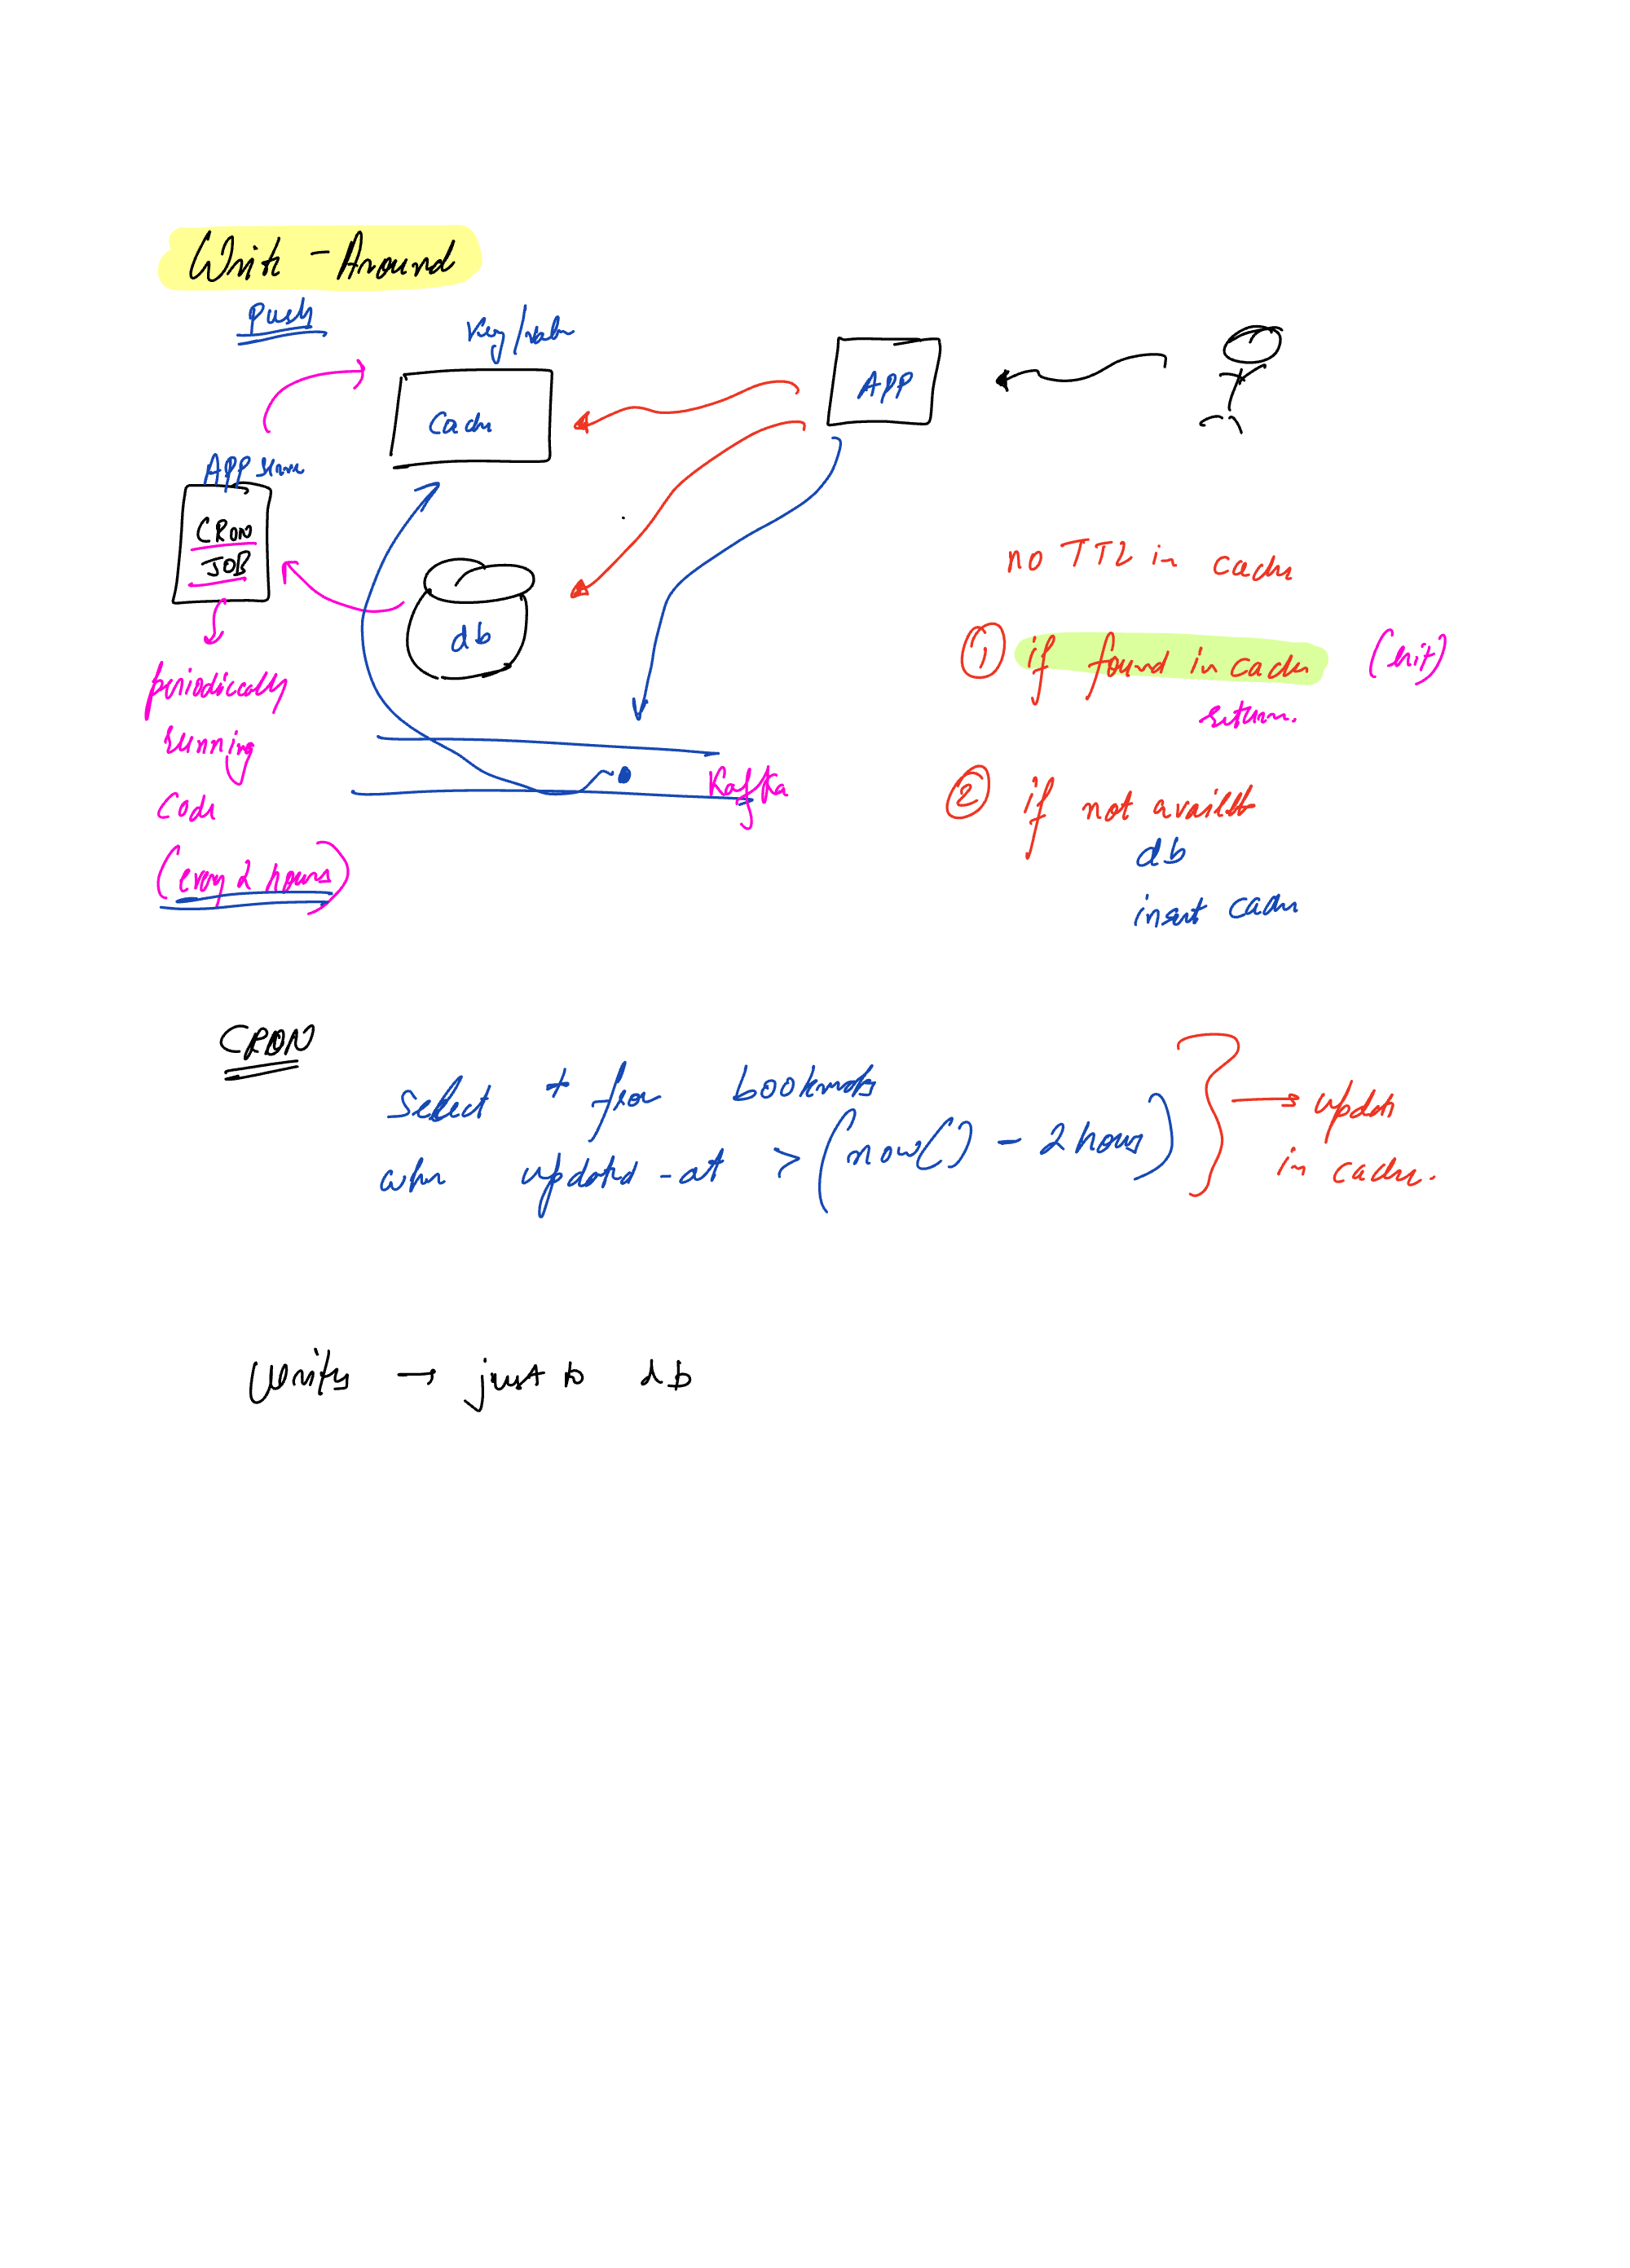 Write - Around
Push
Key/value
Cache
APP
APP server
CRON
JOB
db
periodically
running
Code
(every 2 hours)
Kafka
no TTL in cache
① if found in cache (hit)
return.
② if not available
db
insert cache
CRON
Select * from bookmarks
where updated_at > (now() - 2 hours)
→ update
in cache.
Writes → just to db